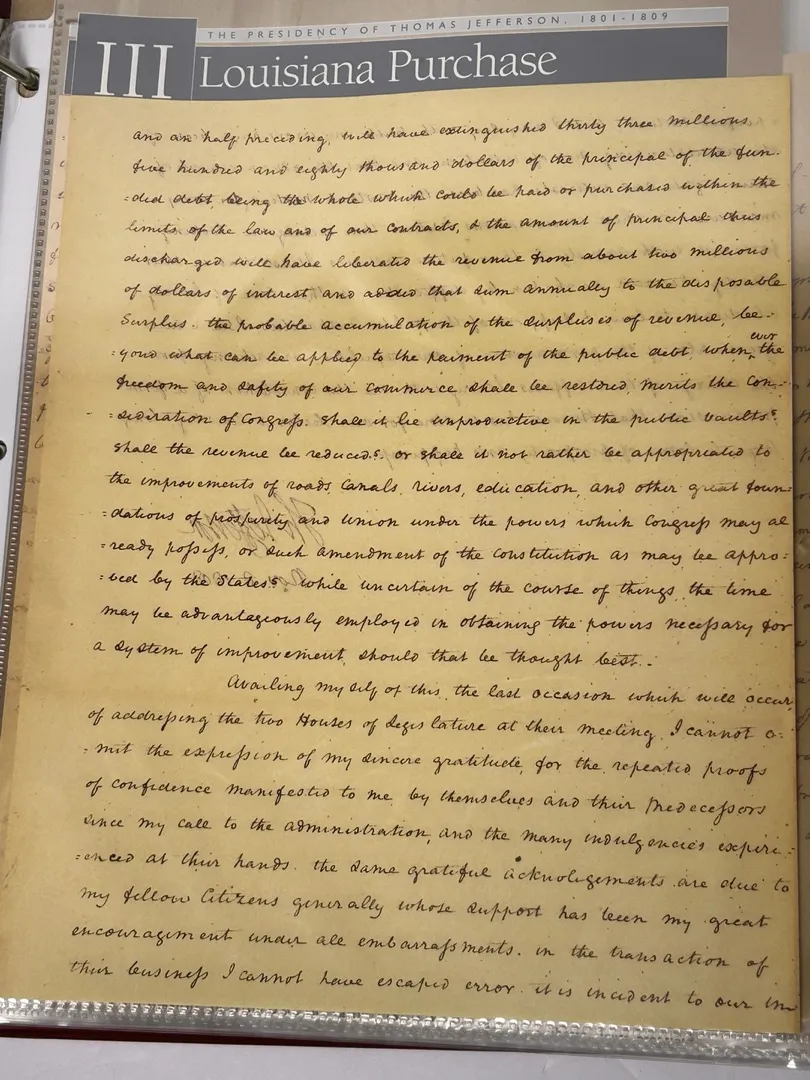 THE PRESIDENCY OF THOMAS JEFFERSON, 1801-1809
III Louisiana Purchase
and an half preceding, will have extinguished thirty three millions
five hundred and eighty thousand dollars of the principal of the fun-
=ded debt, being the whole which could be paid or purchased within the
limits of the law and of our contracts, & the amount of principal thus
discharged will have liberated the revenue from about two millions
of dollars of interest, and added that sum annually to the disposable
surplus. the probable accumulation of the surpluses of revenue, be-
=yond what can be applied to the paiment of the public debt, when ever the
freedom and safety of our commerce shall be restored, merits the con-
=sideration of Congress. shall it lie unproductive in the public vaults?
shall the revenue be reduced? or shall it not rather be appropriated to
the improvements of roads, canals, rivers, education, and other great foun-
=dations of prosperity and union under the powers which Congress may al
=ready possess, or such amendment of the constitution as may be appro=
=ved by the States? while uncertain of the course of things, the time
may be advantageously employed in obtaining the powers necessary for
a system of improvement, should that be thought best.
Availing myself of this, the last occasion which will occur,
of addressing the two Houses of legislature at their meeting, I cannot o-
=mit the expression of my sincere gratitude, for the repeated proofs
of confidence manifested to me by themselves and their predecessors
since my call to the administration, and the many indulgencies experi-
=enced at their hands. the same grateful acknolegements are due to
my fellow citizens generally whose support has been my great
encouragement under all embarrassments. in the transaction of
their business I cannot have escaped error. it is incident to our im